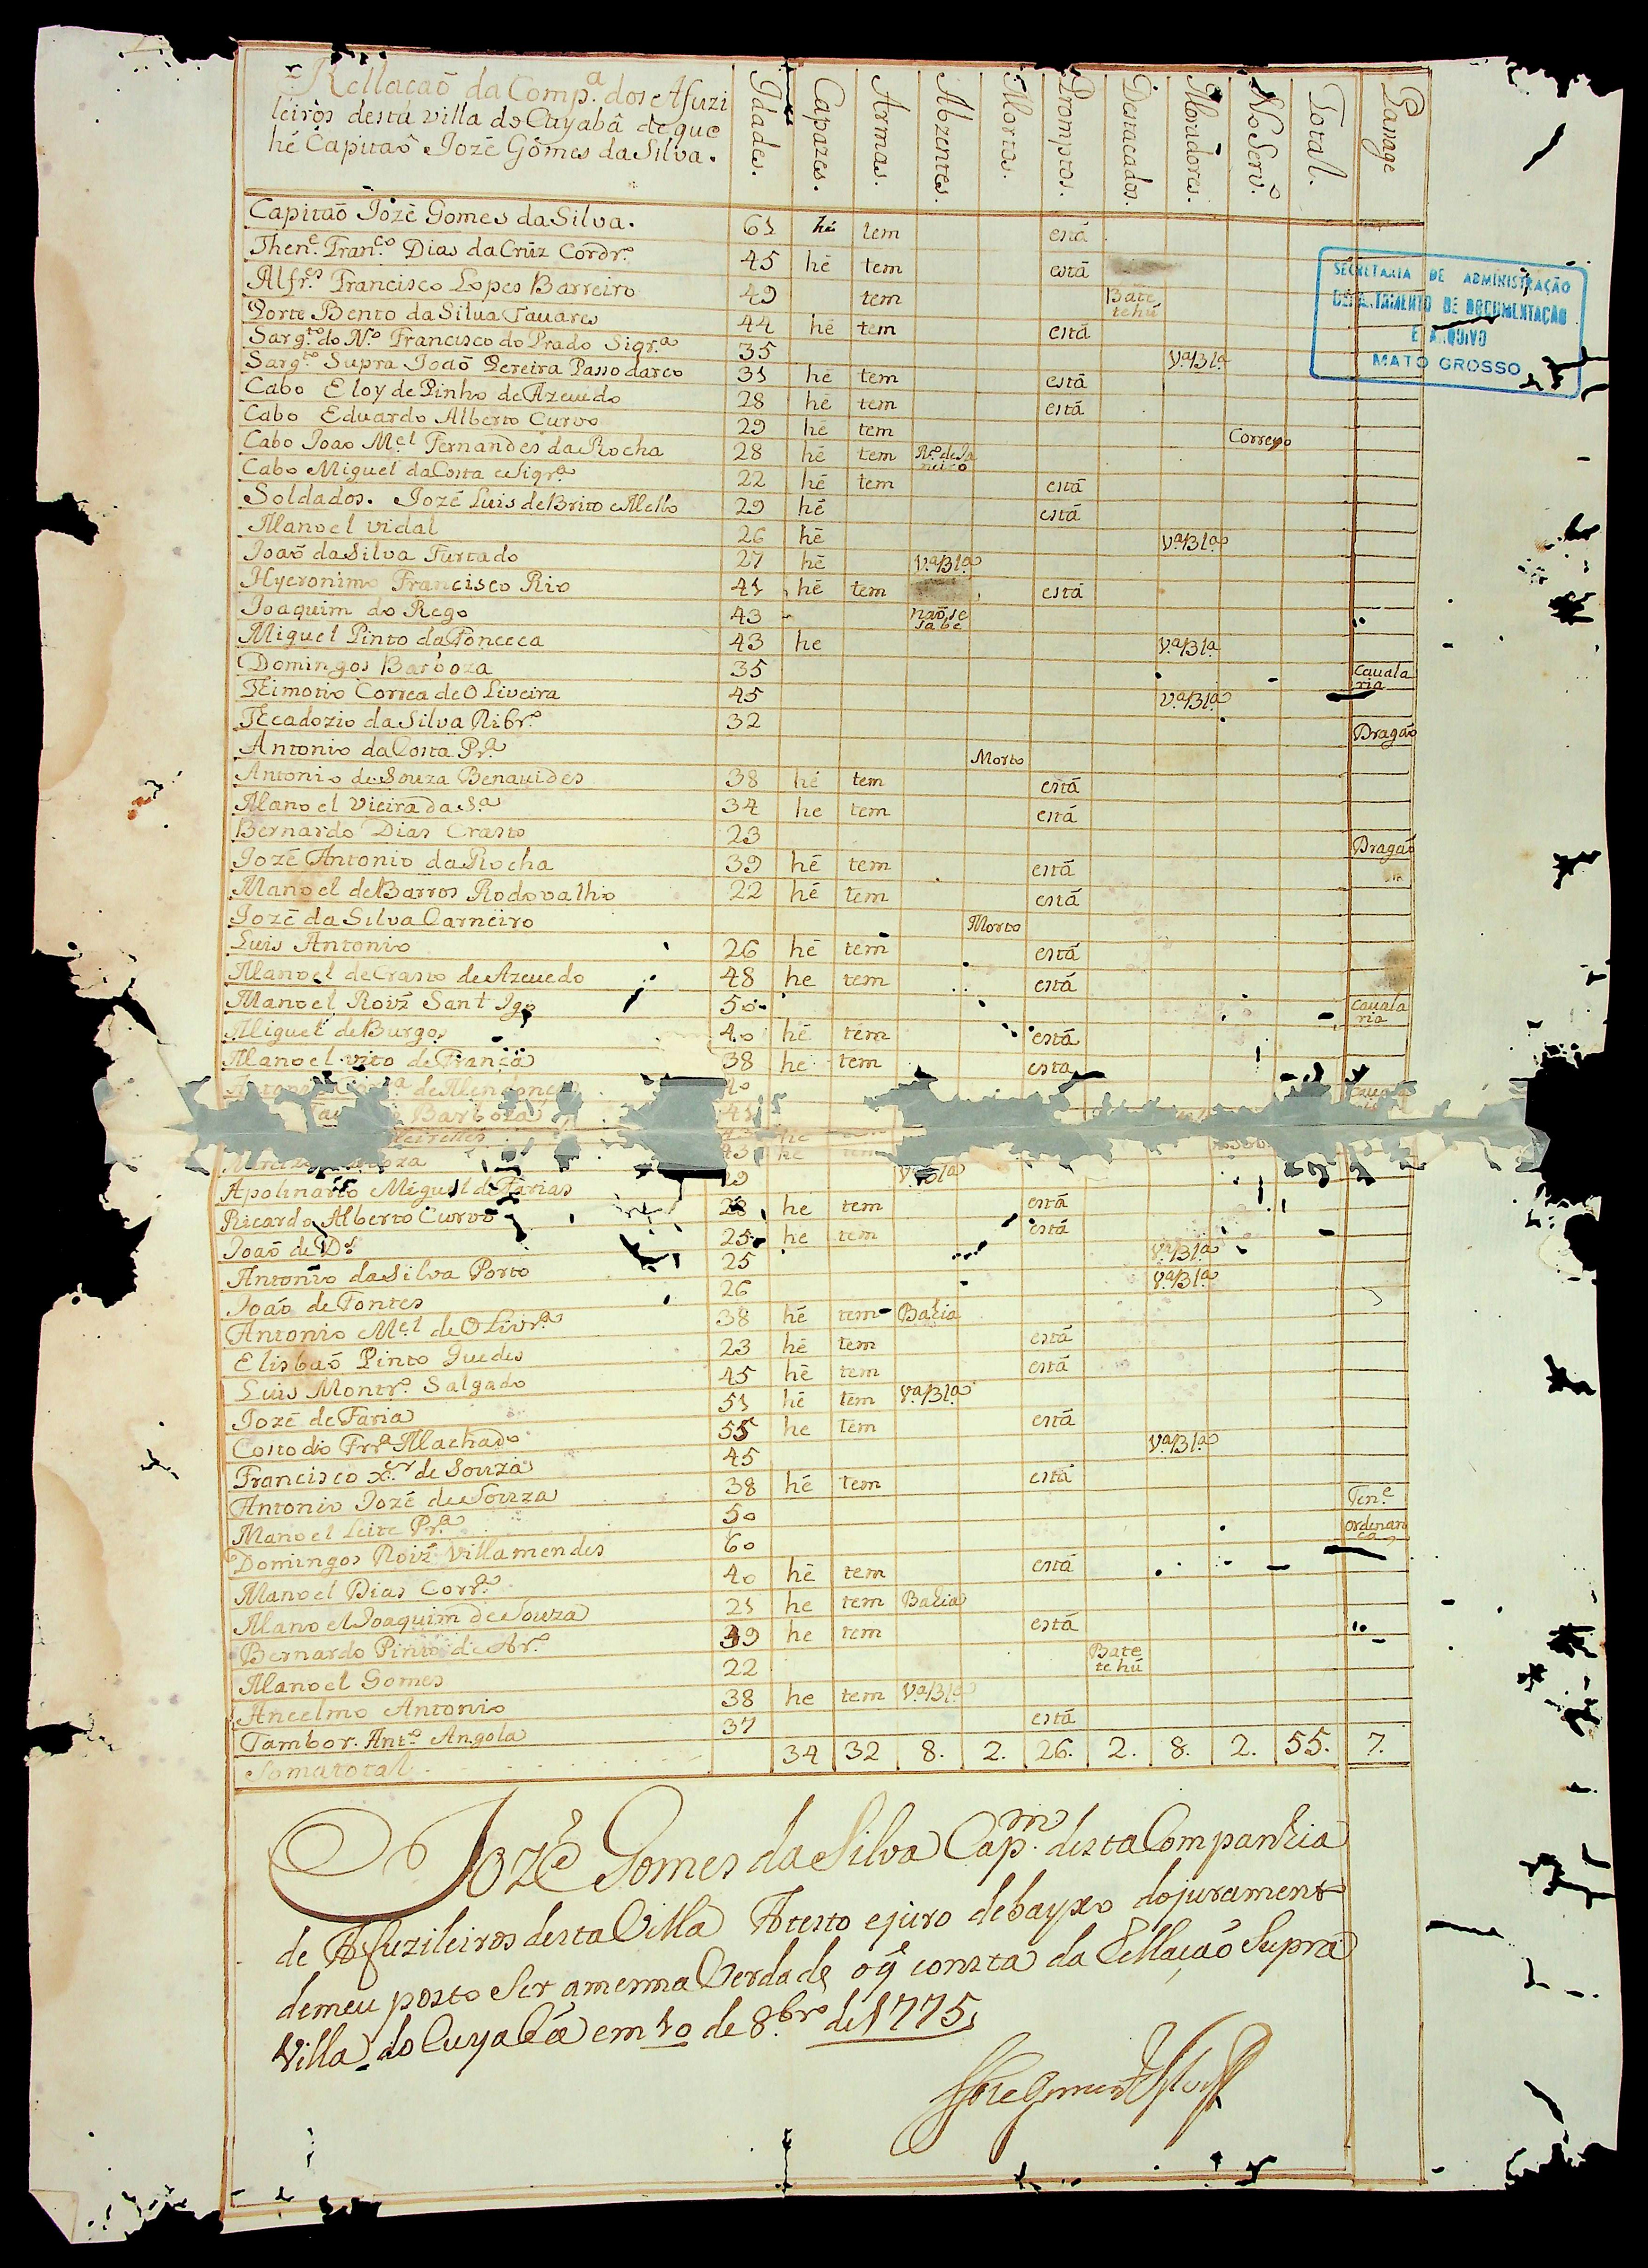 Rellação da Comp.ª dos Afuzi
leiros desta villa do Cuyabâ de que
hé Capitaô Jozê Gômes da Silva.
Idades. Capazes. Armas. Abzentes. Mortos. Promptos. Destacados. Moradores. No Serv.º Total. Panage
Capitaõ Jozê Gomes da Silva. 61 hé tem está
Then.e Fran.co Dias da Crûz Cordr.º 45 hê tem está
Alfr.es Francisco Lopes Barreiro 49 tem Bate tehú
Porte Bento da Silua Tauares 44 hê tem está
Sarg.to do N.º Francisco do Prado Siqr.ª 35 V.ªBl.ª
Sarg.to Supra Joaõ Pereira Passo darco 31 hê tem está
Cabo Eloy de Pinho de Azeuedo 28 hê tem está
Cabo Eduardo Alberto Curvo 29 hê tem Correyo
Cabo Joao M.el Fernandes da Rocha 28 hê tem R.º de Ja neiro
Cabo Miguel da Costa e Siqr.ª 22 hê tem está
Soldados. Jozê Luis de Brito e Mello 29 hê está
Manoel vidal 26 hê V.ªBl.ª
Joaõ da Silva Furtado 27 hê V.ªBl.ª
Hyeronimo Francisco Rio 41 hê tem está
Joaquim do Rego 43 naõ se sabe
Miguel Pinto da Fonceca 43 he V.ªBl.ª
Domingos Barboza 35 Cauala ria
Thimotio Correa de OLiveira 45 V.ªBl.ª
Theadozio da Silva Ribr.º 32 Dragaõ
Antonio da Costa Pr.ª Morto
Antonio de Souza Benauides 38 hé tem está
Manoel Vieira da S.ª 34 he tem está
Bernardo Dias Crasto 23 Dragaõ
Jozê Antonio da Rocha 39 hê tem está
Manoel de Barros Rodovalho 22 hê tem está
Jozê da Silva Carneiro Morto
Luis Antonio 26 hê tem está
Manoel de Crasto de Azeuedo 48 he tem está
Manoel Roiz Sant Igo 50 Cauala ria
Miguel de Burgos 40 hê tem está
Manoel vito de França 38 he tem esta
de Alen 40 Cauala
Barboza 41
he
43 he tem
Apolinario Miguel de Farias 29 V.ªBl.ª
Ricardo Alberto Curvo 28 he tem está
Joaõ de D.s 25 he tem está
Antonio da Silva Porto 25 V.ªBl.ª
Joaõ de Fontes 26 V.ªBl.ª
Antonio M.el de OLivr.ª 38 hê tem Bahia
Elisbaõ Pinto Guedes 23 hê tem está
Luis Montr.º Salgado 45 hê tem está
Jozê de Faria 51 hê tem V.ªBl.ª
Costodio Frr.ª Machado 55 he tem está
Francisco x.er de Souza 45 V.ªBl.ª
Antonio Jozê de Souza 38 hê tem está
Manoel Leite Pr.ª 50 Ten.e
Domingos Roiz Villamendes 60 ordenan ça
Manoel Dias Corr.ª 40 hê tem está
Manoel Joaquim de Souza 21 he tem Bahia
Bernardo Pinto de Abr.º 39 he tem está
Manoel Gomes 22 Bate tehú
Ancelmo Antonio 38 he tem V.ªBl.ª
Tambor. Ant.º Angola 37 está
Soma total 34 32 8. 2. 26. 2. 8. 2. 55. 7.
Jozê Gomes da Silva Cap.m desta Companhia
de Afuzileiros desta Villa Atesto e juro debayxo do jurament
de meu posto Ser a mesma Verdade o q̃ consta da Rellaçaõ Supra
Villa do Cuyabâ em 10 de 8.bro de 1775
SECRETARIA DE ADMINISTRAÇÃO
DEPARTAMENTO DE DOCUMENTAÇÃO
E ARQUIVO
MATO GROSSO